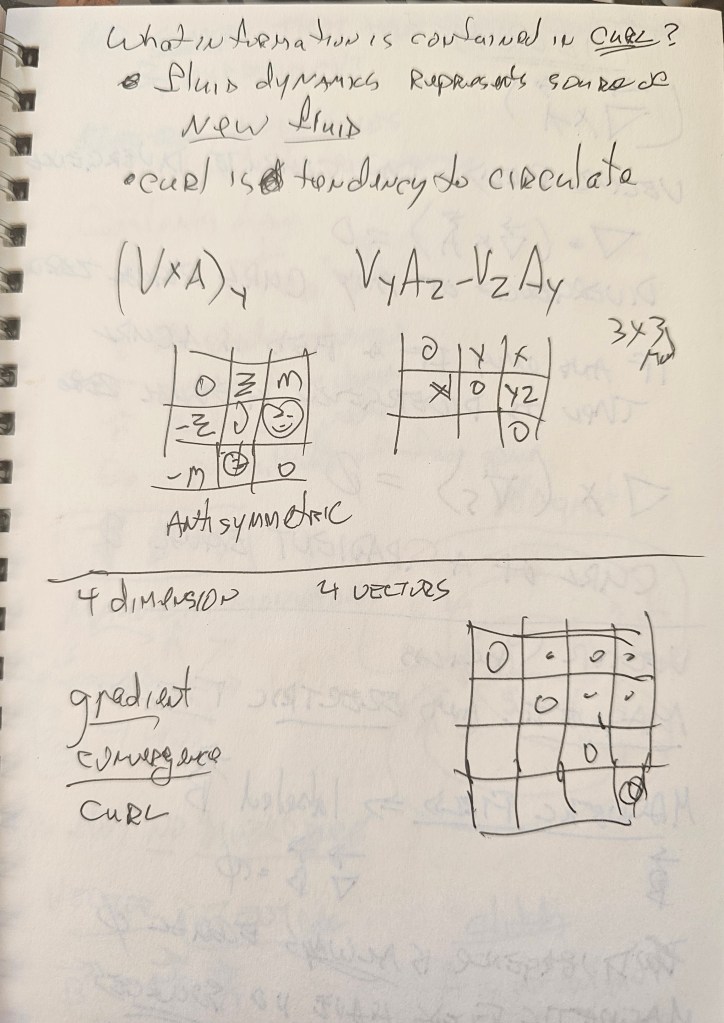 What information is contained in CURL?
• fluid dynamics Represents source of
New fluid
• CURL is tendency to circulate
(V×A)y VyAz-VzAy
3x3
0 Y X
X 0 YZ
0
0 Ξ m
-Ξ 0
-m 0
Antisymmetric
4 dimension 4 VECTORS
0 . . .
0 . .
0
0
gradient
convergence
CURL